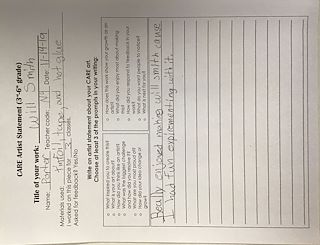 CARE Artist Statement (3rd-6th grade)
Title of your work: Will Smith
Name: Porter Teacher code: Date: 11-14-19
Materials used: tinfoil, tape, and hot glue
I worked on this piece for 3 classes.
Asked for feedback? Yes/No
Write an artist statement about your CARE art.
Choose at least 3 of the prompts in your writing:
What inspired you to create this?
What is your art about?
How did you develop as an artist?
What was the biggest challenge
and how did you resolve it?
What are you most proud of?
How did your ideas change or
grow?
How does this show your growth as an
artist?
What did you enjoy most about making
this?
How did you respond to feedback in your
work?
What do you want people to notice?
What is next for you?
I Really enjoyed making will smith cause
I had fun exsperamenting with it.